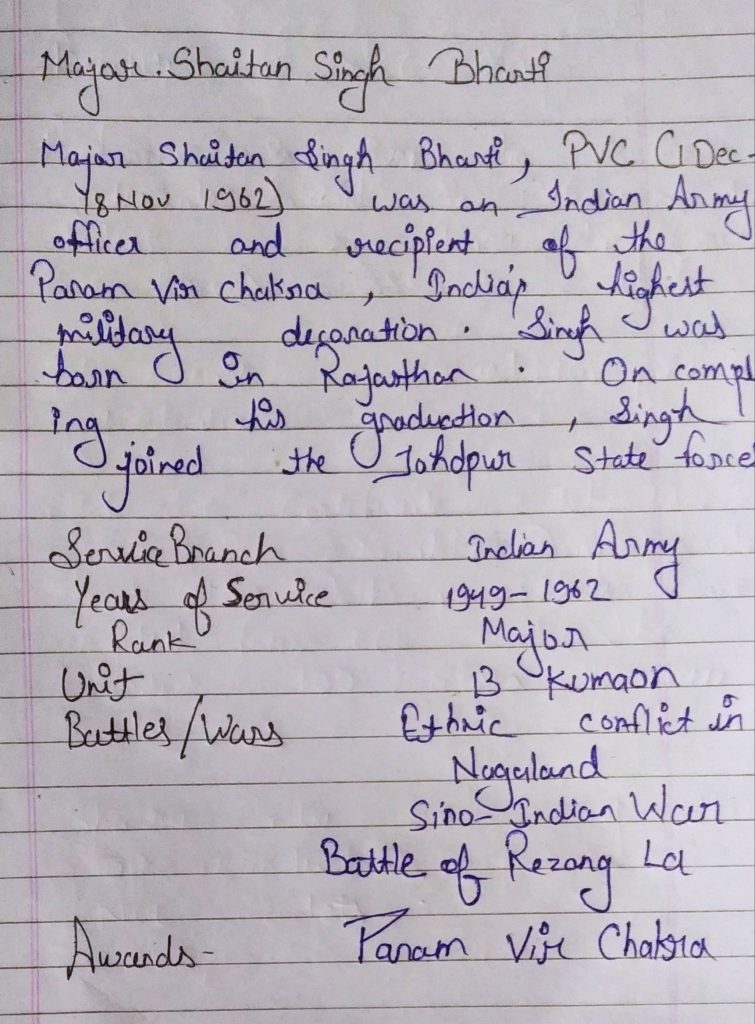 Major. Shaitan Singh Bhanti
Major Shaitan Singh Bhanti, PVC (1 Dec-
18 Nov 1962) was an Indian Army
officer and recipient of the
Param Vir Chakra, India's highest
military decoration. Singh was
born in Rajasthan. On compl
ing his graduction, Singh
joined the Johdpur State force
Service Branch Indian Army
Years of Service 1949-1962
Rank Major
Unit 13 Kumaon
Battles/Wars Ethnic conflict in
Nagaland
Sino-Indian War
Battle of Rezang La
Awards- Param Vir Chakra